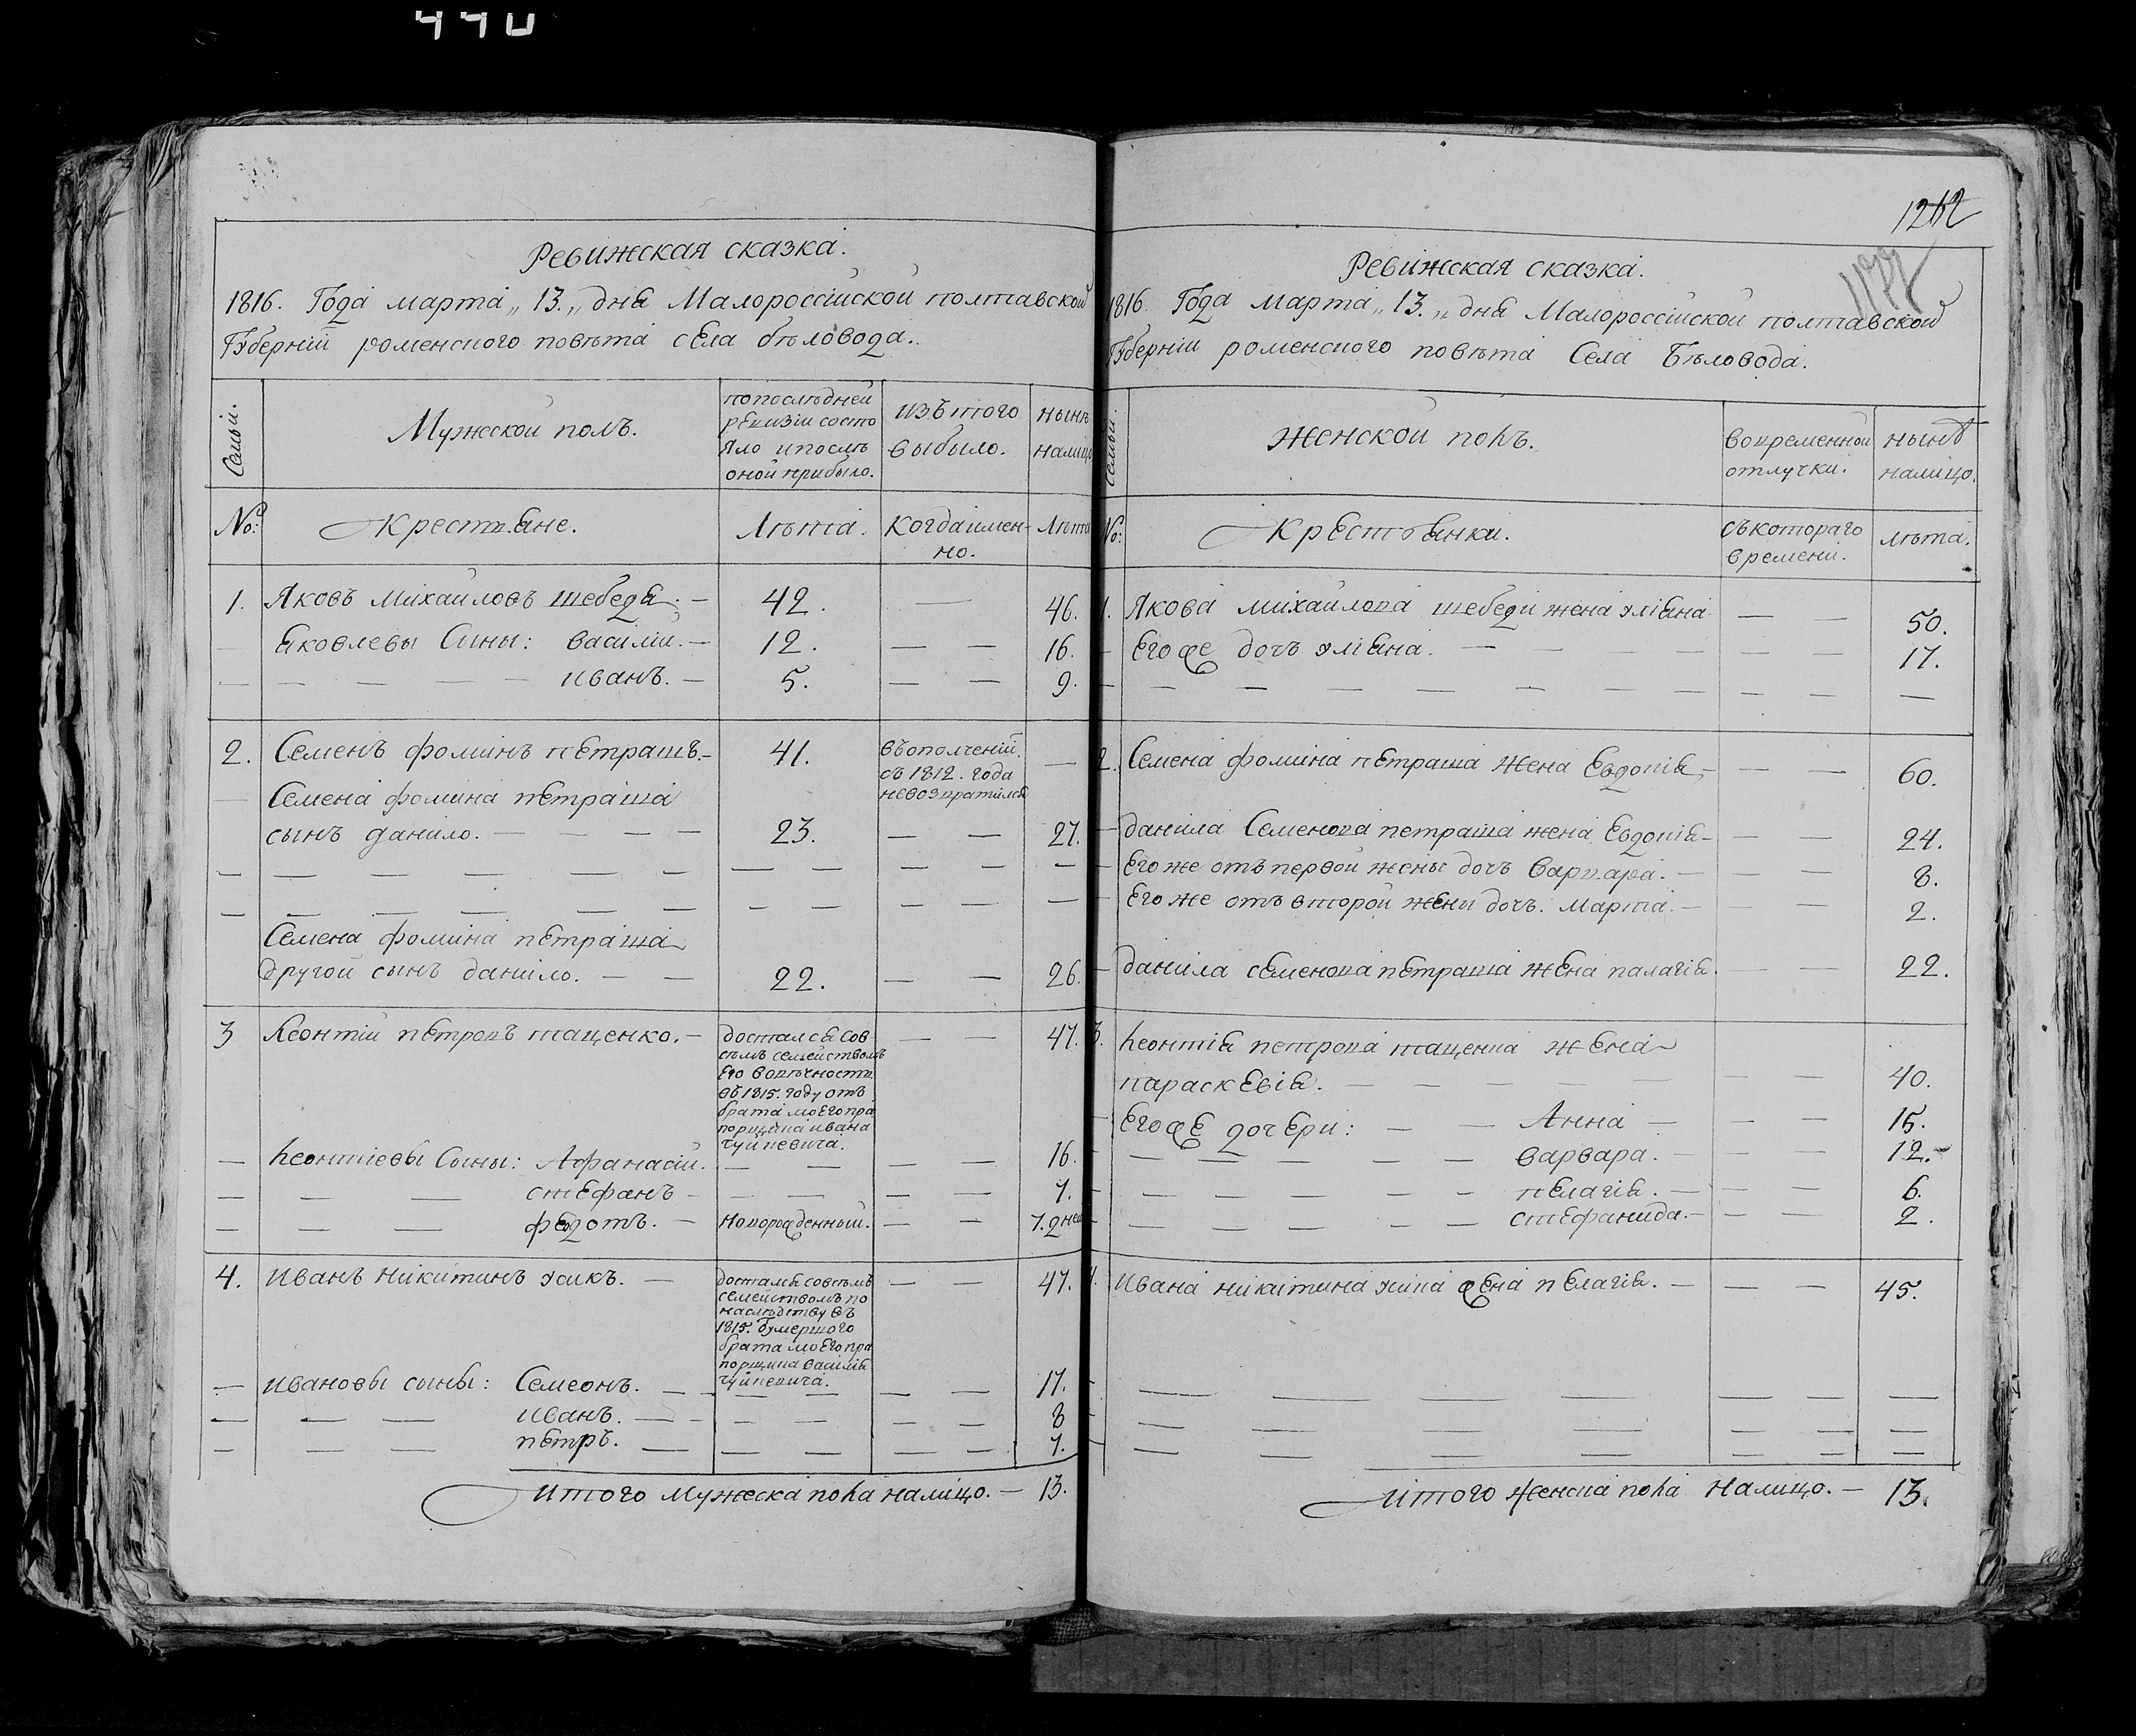 440
Ревижская сказка.
1816. Года марта „13.„ дня Малороссійской полтавской
Губерніи роменского повѣта села бѣловода.
Семьи.
Мужеской полъ.
попослѣдней
ревизіи состо
яло ипослѣ
оной прибыло.
изъ того
выбыло.
нынѣ
налицо
№:
Крестьяне.
Лѣта.
Когдаимен-
но.
Лѣта
1. Яковъ михайловъ шебедя. — 42. — 46.
яковлевы Сыны: василій. — 12. — — 16.
иванъ. — 5. — — 9.
2. Семенъ фоминъ петрашъ. — 41. въополченіи —
съ 1812. года
невозвратился
Семена фомина петраша
сынъ данило. — 23. — — 27.
Семена фомина петраша
другой сынъ данило. — — 22. — — 26.
3 Леонтій петровъ таценко. — достался сов — — 47.
сѣмъ семействомъ
его вовѣчность
въ 1815. году отъ
брата моего пра
порщика ивана
чуйкевича.
Леонтіевы Сыны: Афанасій. — — — — 16.
стефанъ — — — — — 7.
федотъ. — Новорожденный. — — 7. дней
4. иванъ никитинъ усикъ. — достался совсѣмъ — — 47.
семействомъ по
наслѣдству въ
1815. Умершого
брата моего пра
порщика василія
чуйкевича.
ивановы сыны: Семеонъ. — — — 17.
иванъ. — — — — — 8
петръ. — — — — — 7.
итого мужеска пола налицо. — 13.
1212
Ревижская сказка.
1816. Года марта „13.„ дня Малороссійской полтавской
Губерніи роменского повѣта Села Бѣловода.
Семьи.
женской полъ.
вовременной
отлучки.
нынѣ
налицо.
№:
Крестьянки.
съкотораго
времени.
лѣта.
1. Якова михайлова шебеди жена уліяна — — 50.
Егоже дочъ уліяна. — — — 17.
2. Семена фомина петраша жена Евдокія — — — 60.
данила Семенова петраша жена Евдокія — — — 24.
Егоже отъ первой жены дочъ варвара. — — — 8.
Егоже отъ второй жены дочъ. марта. — — — 2.
данила семенова петраша жена палагія. — — 22.
3. Леонтія петрова таценка жена
параскевія. — — — 40.
Егоже дочери: — — Анна — — — 15.
варвара. — — — 12.
пелагія. — — — 6.
стефанида. — — — 2.
4. ивана никитина усика жена пелагія. — — — 45.
итого женска пола налицо. — 13.